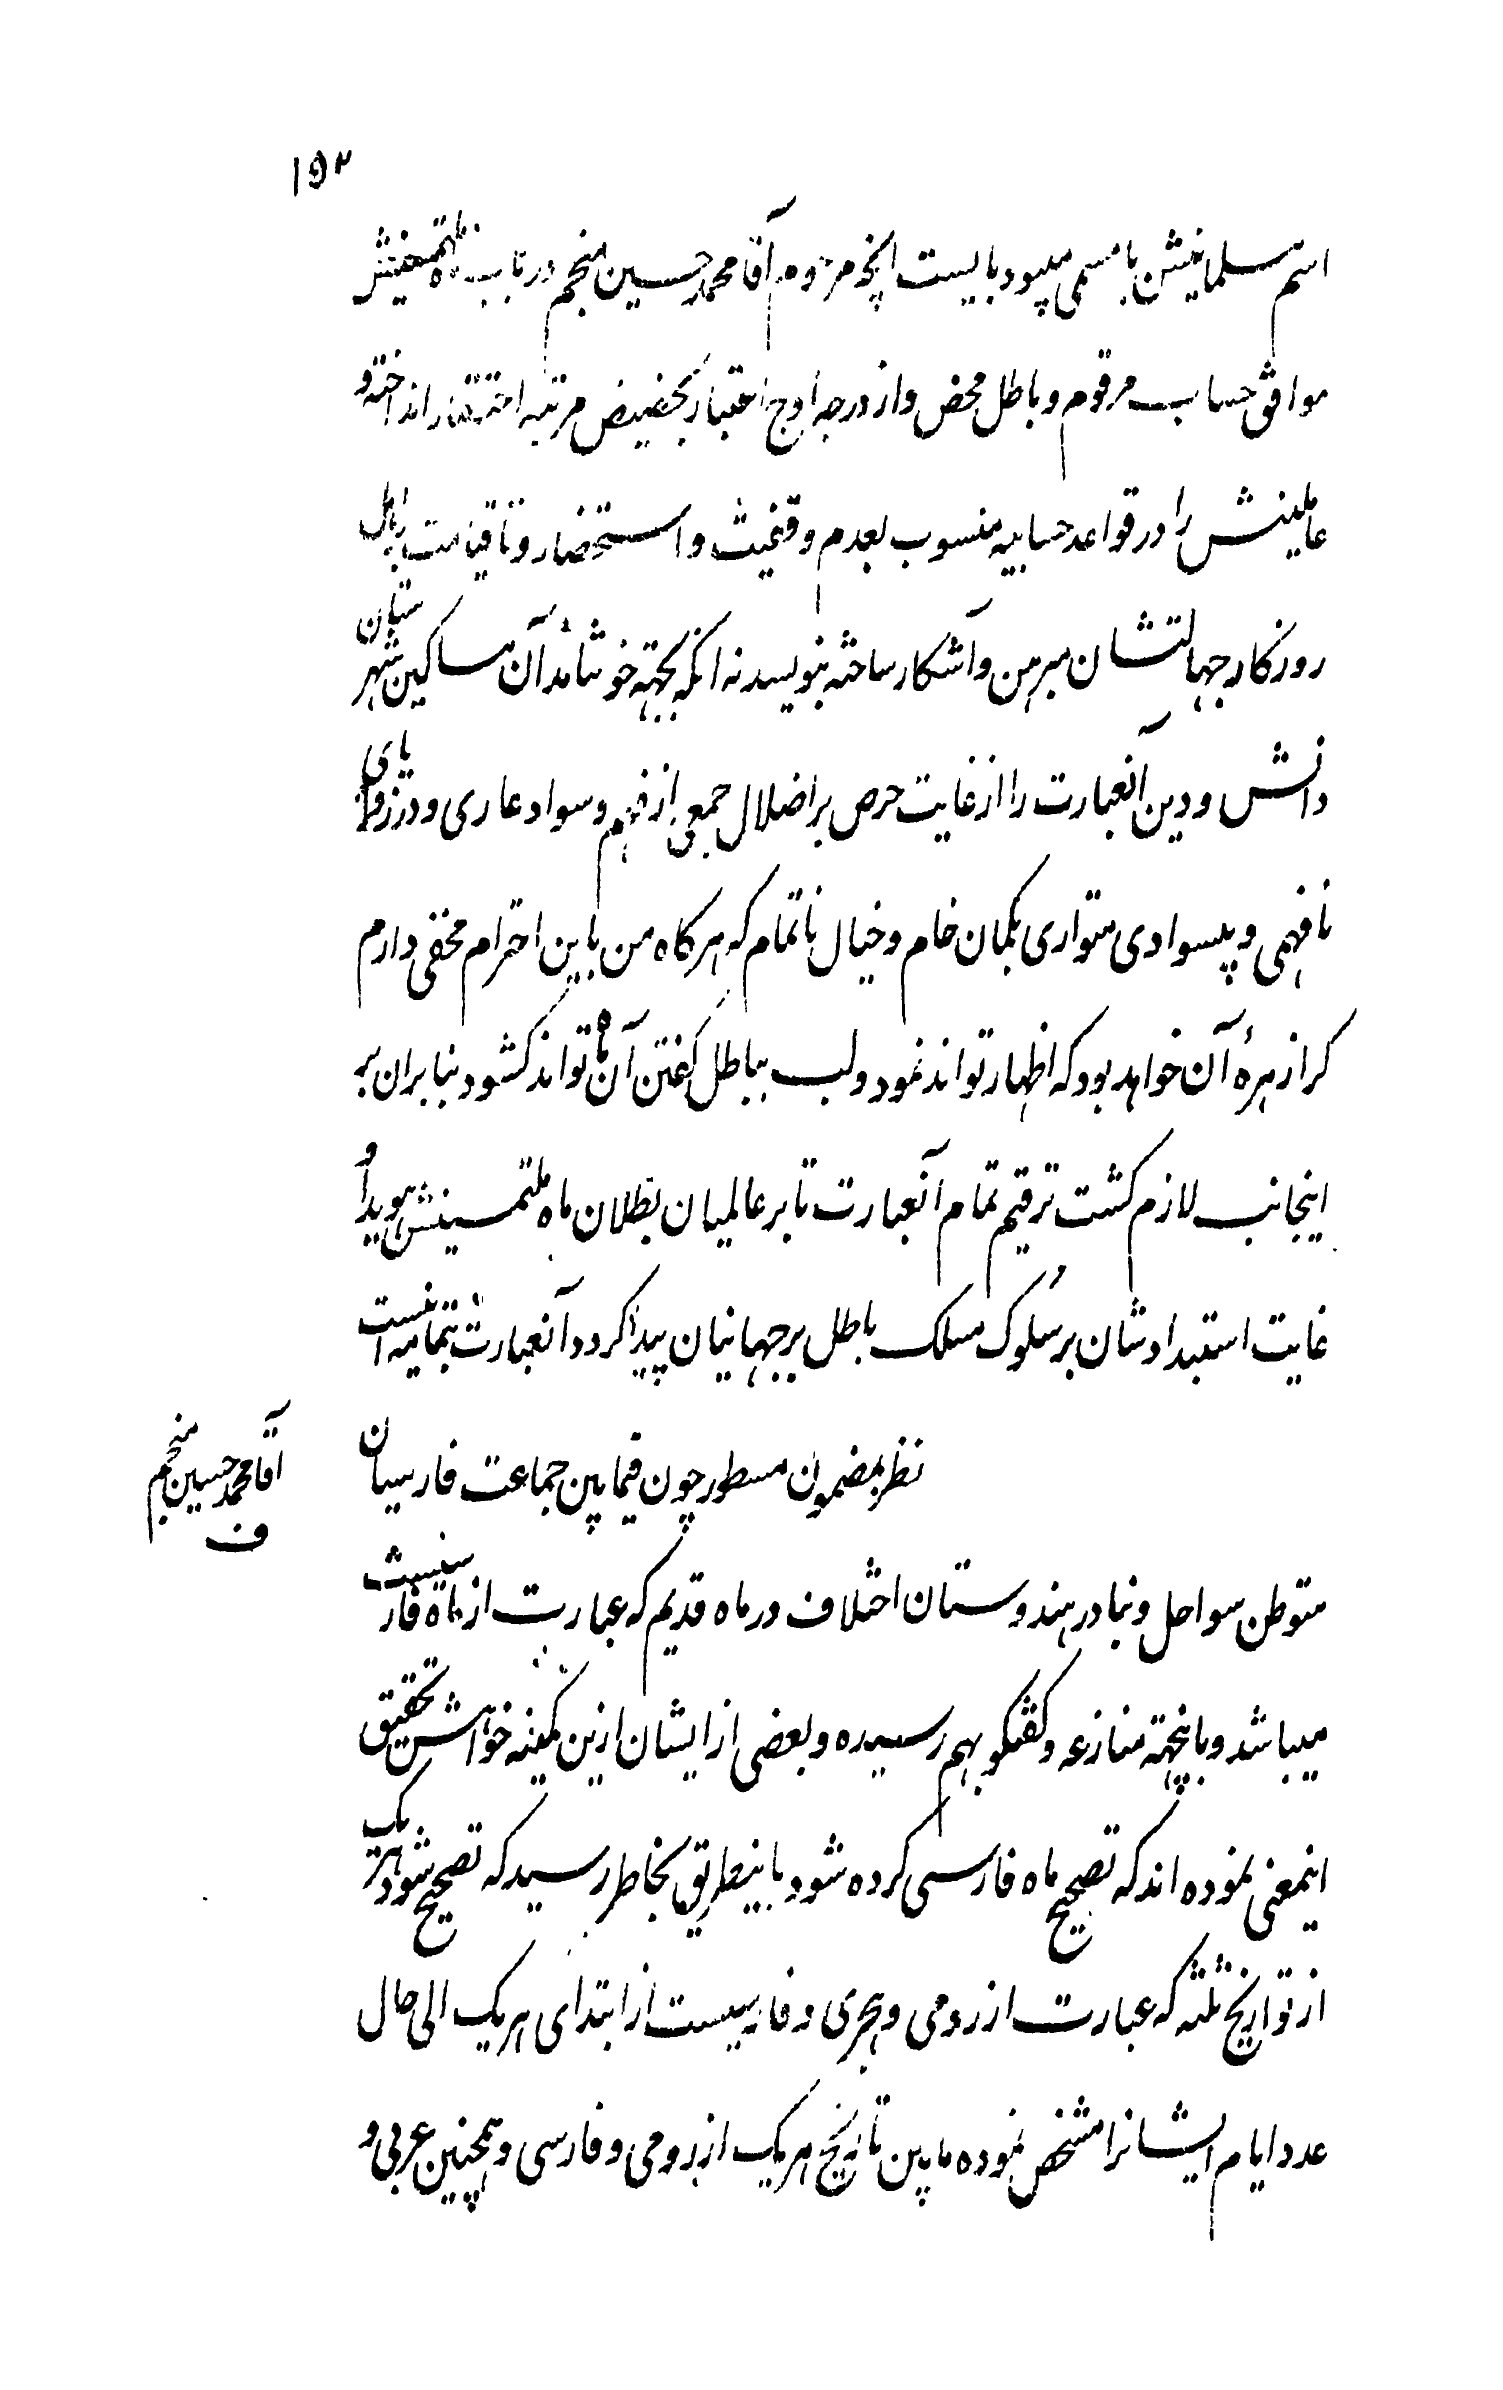 ۱۵۲
اسم مسلمانیش با مسمی میبود بایست آنچه مرحوم آقا محمد حسین منجم در باب ماه ملتمسینش
موافق حساب مرقوم و باطل محض و از درجه اوج اعتبار بحضیض مرتبه احتقار انداخته و
عاملینش را در قواعد حسابیه منسوب بعدم وقفیت و استحضار و تا قیامت بر اهل
روزکار جهالتشان مبرهن و آشکار ساخته بنویسد نه انکه بجهته خوشامد آن مساکین شهرستان
دانش و دین آنعبارت را از غایت حرص بر اضلال جمعی از فهم و سواد عاری و در زوایای
نافهمی و بیسوادی متواری بکمان خام و خیال ناتمام که هرکاه من باین احترام مخفی دارم
کرا زهرهٔ آن خواهد بود که اظهار تواند نمود و لب بباطل گفتن آن ماه تواند کشود بنابران بر
اینجانب لازم کشت ترقیم تمام آنعبارت تا بر عالمیان بطلان ماه ملتمسینش هویدا و
غایت استبدادشان بر سُلوک مسلک باطل بر جهانیان پیدا کردد آنعبارت بتمامیه اینست
نظر بمضمون مسطور چون فیمابین جماعت فارسیان
آقا محمد حسین منجم
ف
متوطن سواحل و بنادر هندوستان اختلاف در ماه قدیم که عبارت از ماه فارسیست
میباشد و باینجهته منازعه و کفتکو بهم رسیده و بعضی از ایشان ازین کمینه خواهش تحقیق
اینمعنی نموده اند که تصحیح ماه فارسی کرده شود باینطریق بخاطر رسید که تصحیح شود هریک
از تواریخ ثلثه که عبارت از رومی و هجری و فارسیست از ابتدای هریک الی حال
عدد ایام ایشانرا مشخص نموده مابین تاریخ هریک از رومی و فارسی و همچنین عربی و